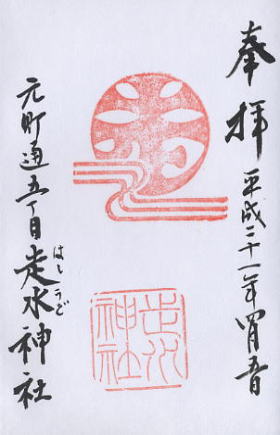 奉拝
平成二十一年四月吾日
元町通五丁目走水神社
はしうど
走水
神社